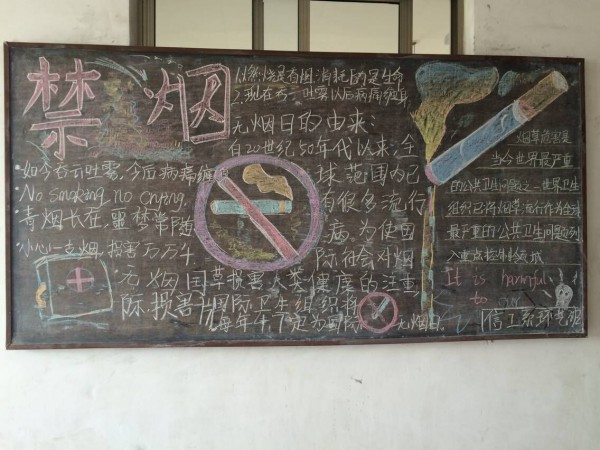 禁烟
1.燃烧是香烟 消耗的是生命
2.现在吞云吐雾 以后病痛缠身
如今吞云吐雾,今后病痛缠身
No smoking, no crying.
青烟长在,噩梦常随
小小一支烟,损害万万千
无烟日的由来:
自20世纪50年代以来,全
球范围内已
有很多流行
病 为使国
际社会对烟
草损害人类健康的注重
无烟
国际卫生组织将
每年
定为国际
无烟日.
烟草危害是
当今世界最严重
的公共卫生问题之一世界卫生
组织已将烟草流行作为全球
最严重的公共卫生问题列
入重点控制领域
It is harmful
to our
信工系环艺班